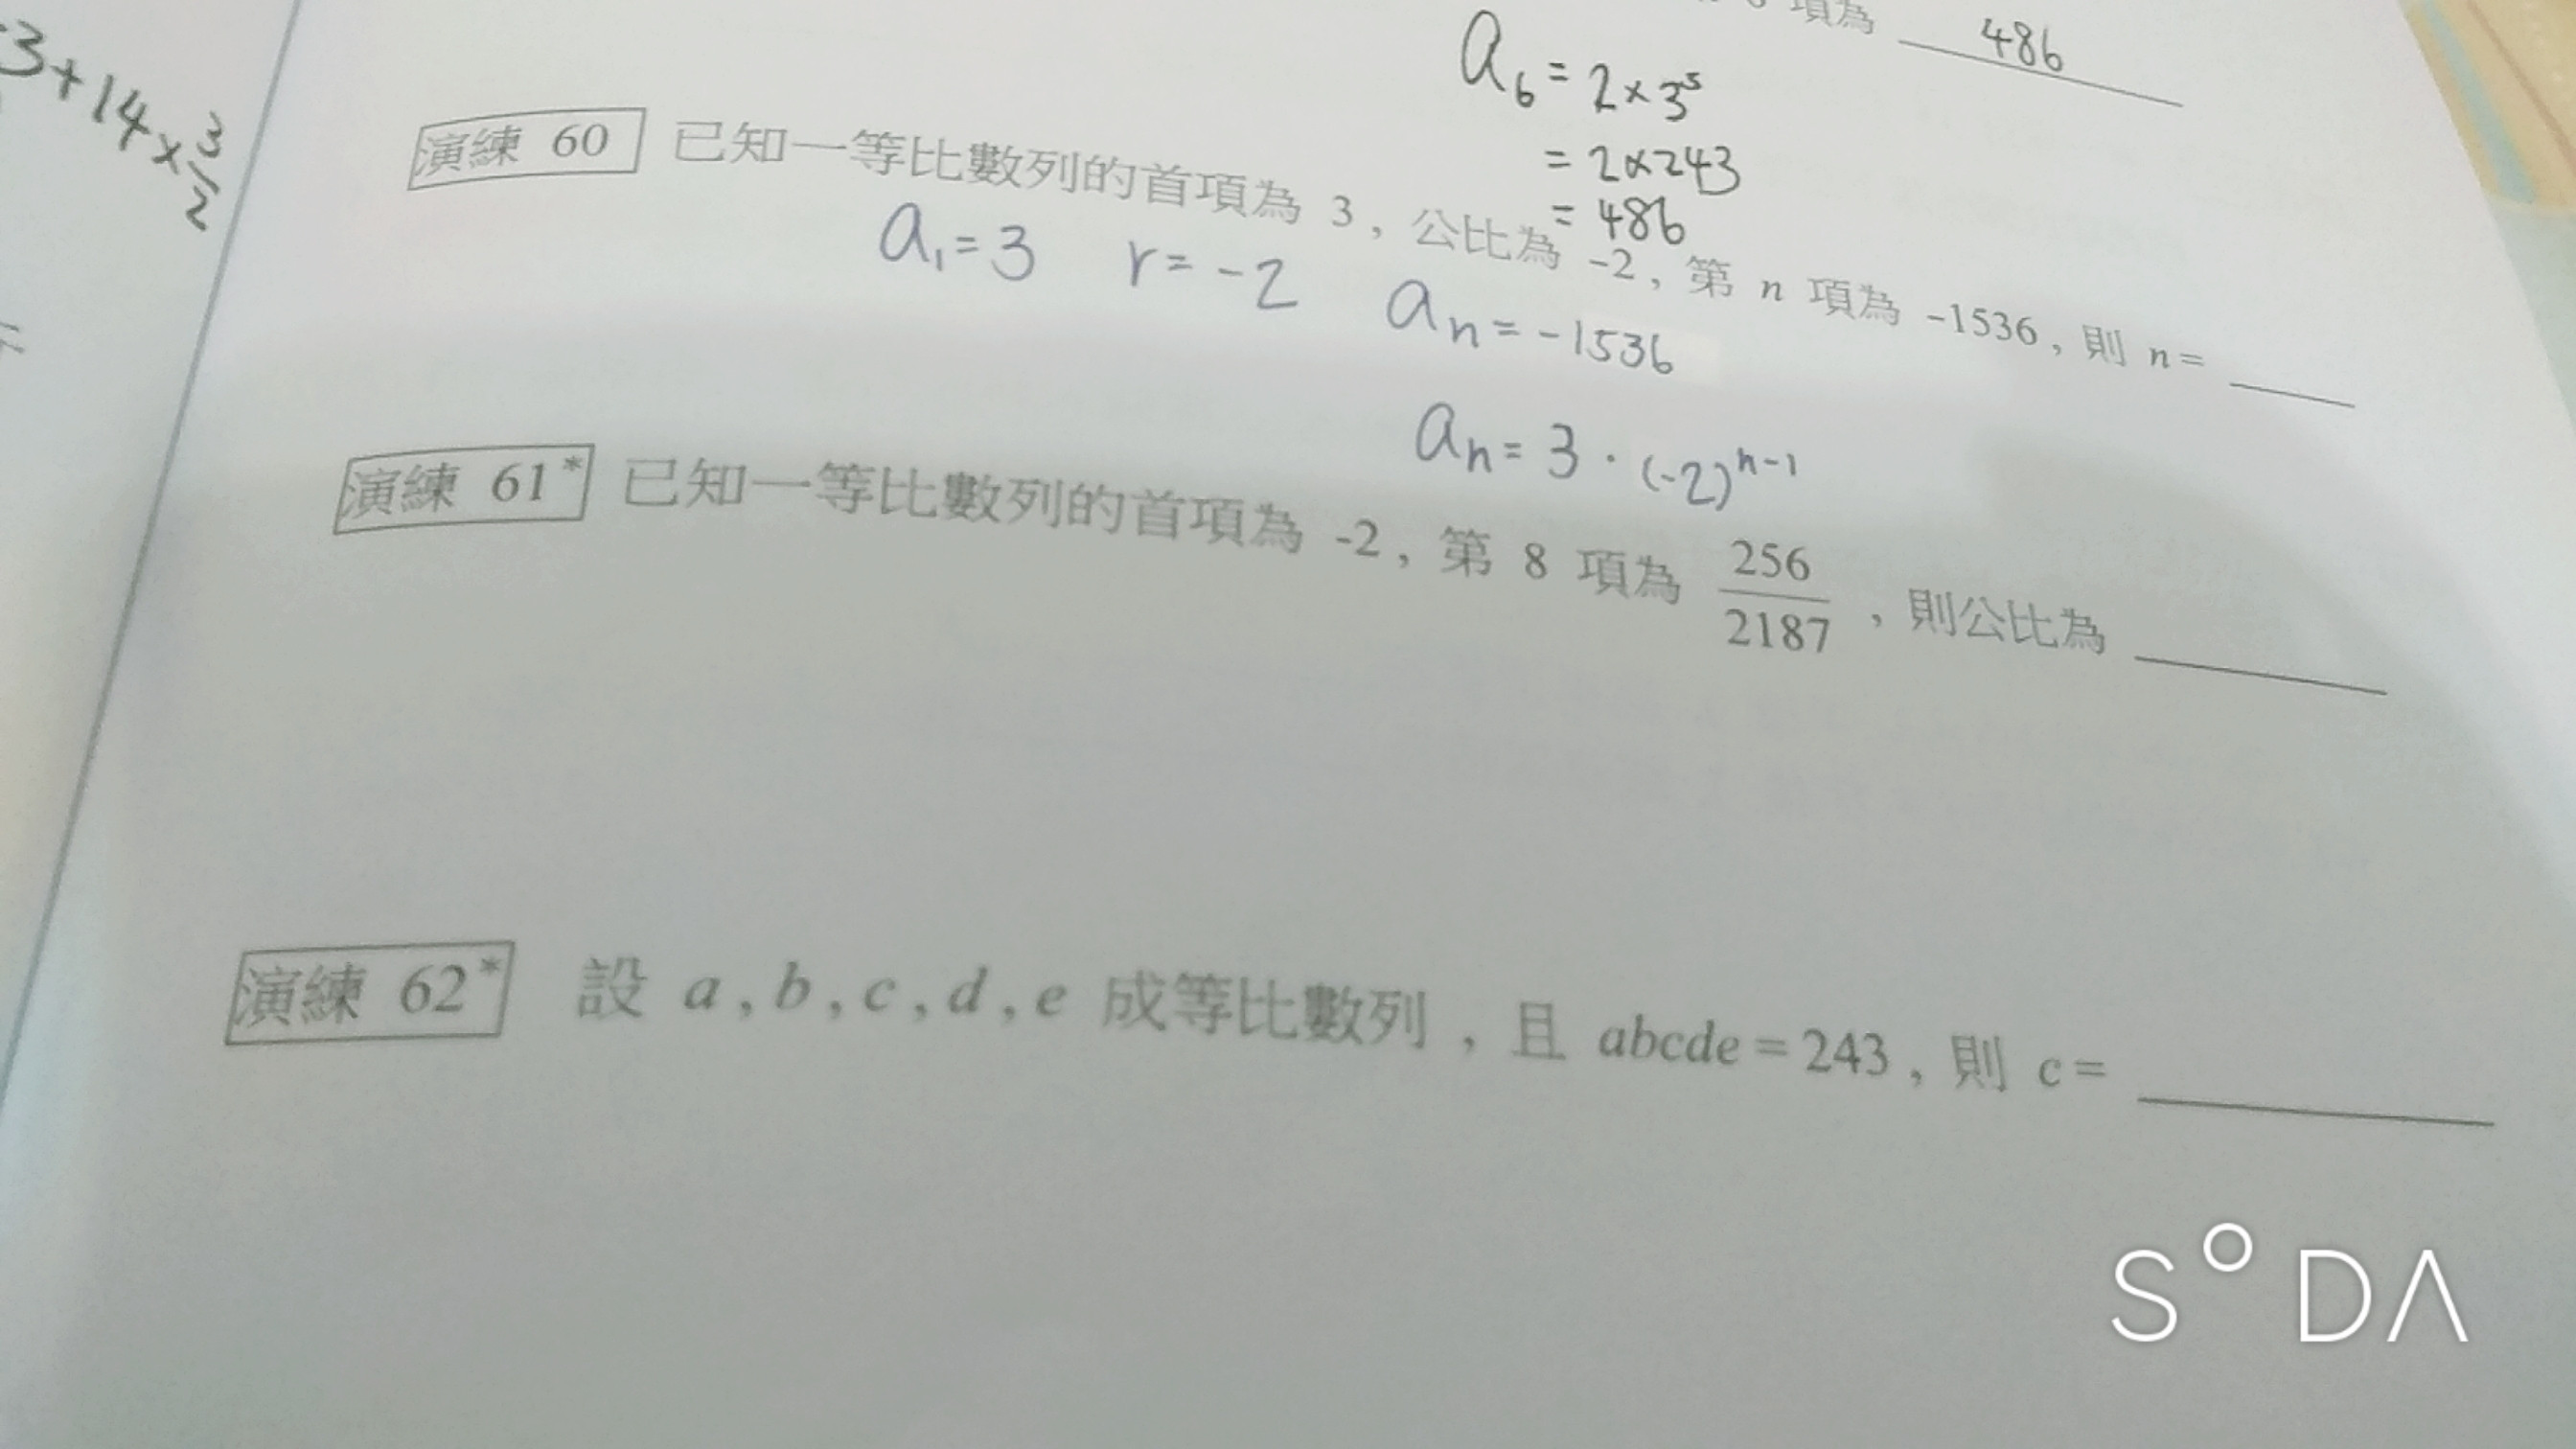 項為 486
a₆ = 2×3⁵
= 2×243
= 486
3+14×3/2
=
演練 60 已知一等比數列的首項為 3，公比為 -2，第 n 項為 -1536，則 n=
a₁=3 r=-2 aₙ=-1536
aₙ=3·(-2)ⁿ⁻¹
演練 61* 已知一等比數列的首項為 -2，第 8 項為 256/2187，則公比為
演練 62* 設 a,b,c,d,e 成等比數列，且 abcde=243，則 c=
S°DΛ